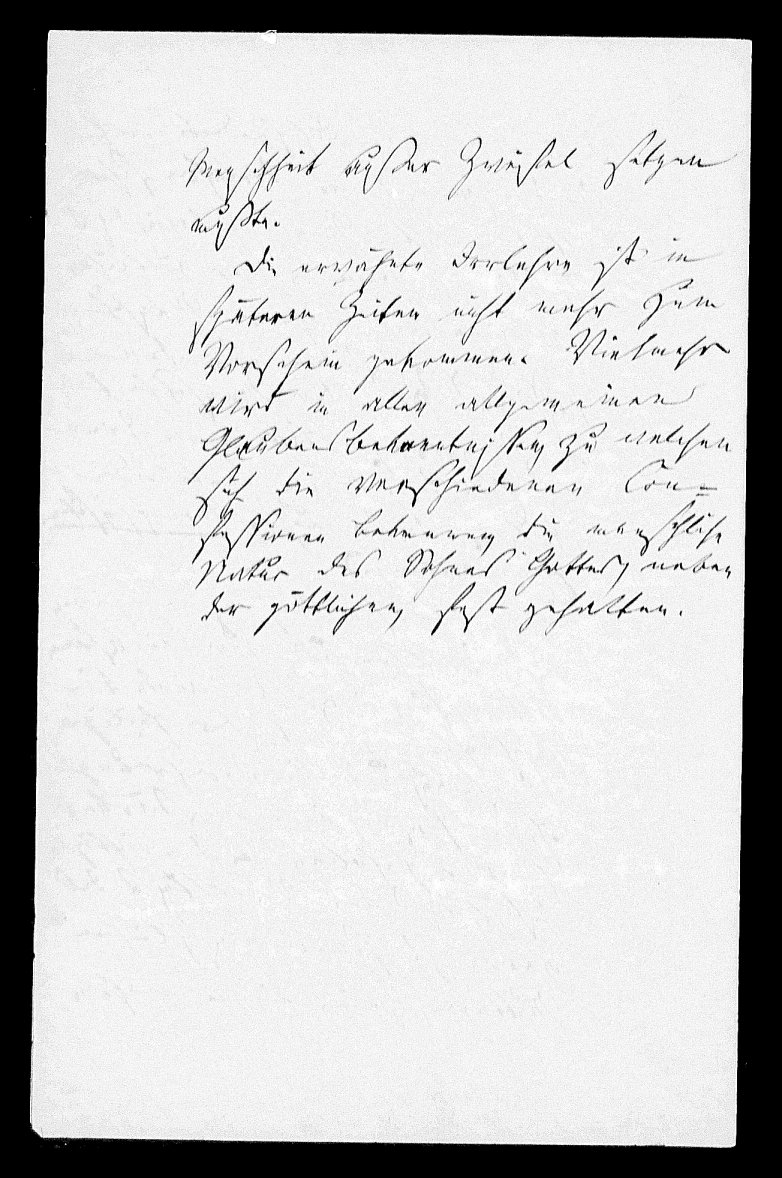 Menschheit außer Zweifel setzen
mußte.
Die erwähnte Irrlehre ist in
späteren Zeiten nicht mehr zum
Vorschein gekommen. Vielmehr
wird in allen allgemeinen
Glaubensbekenntnissen, zu welchen
sich die verschiedenen Con-
fessionen bekennen, die menschliche
Natur des Sohnes Gottes, neben
der göttlichen, fest gehalten.